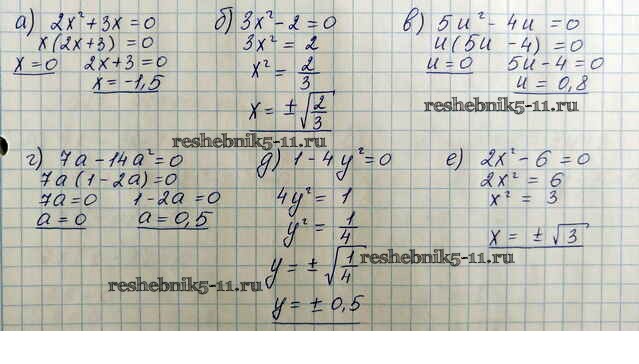 а) 2x² + 3x = 0
x(2x+3) = 0
x = 0   2x+3 = 0
x = -1,5
б) 3x² - 2 = 0
3x² = 2
x² = 2/3
x = ± √(2/3)
в) 5u² - 4u = 0
u(5u - 4) = 0
u = 0   5u - 4 = 0
u = 0,8
reshebnik5-11.ru
reshebnik5-11.ru
г) 7a - 14a² = 0
7a(1 - 2a) = 0
7a = 0   1 - 2a = 0
a = 0   a = 0,5
д) 1 - 4y² = 0
4y² = 1
y² = 1/4
y = ± √(1/4)
y = ± 0,5
е) 2x² - 6 = 0
2x² = 6
x² = 3
x = ± √3
reshebnik5-11.ru
reshebnik5-11.ru